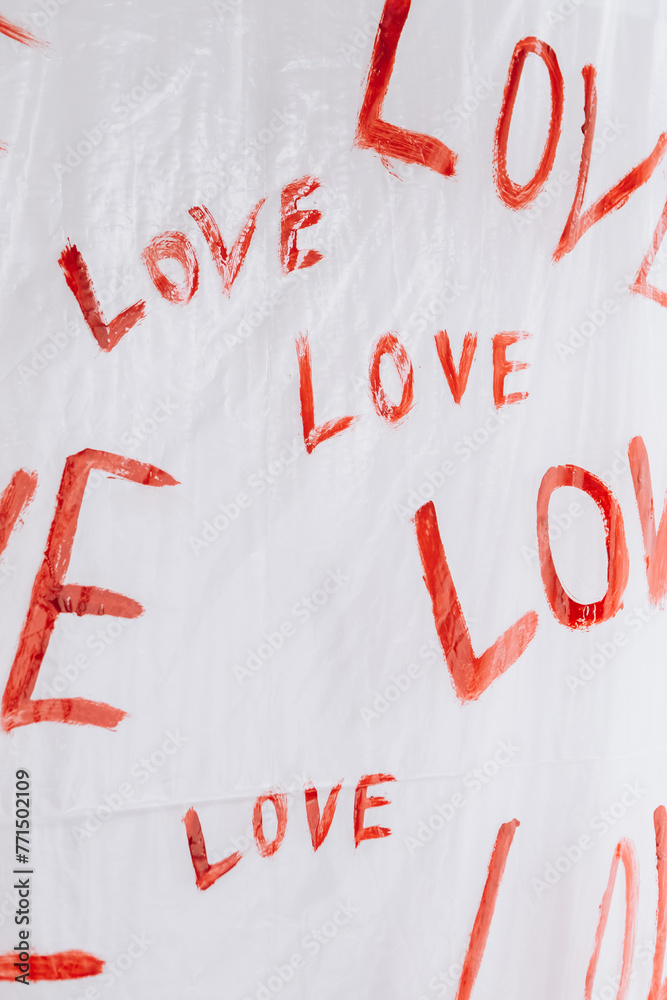 LOVE
LOVE
LOVE
LOV
E
LOVE
LO
Adobe Stock | #771502109